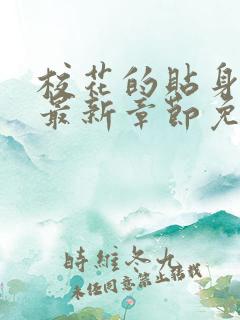 校花的贴身
最新章節免
時維冬九
未任同意禁止轉載